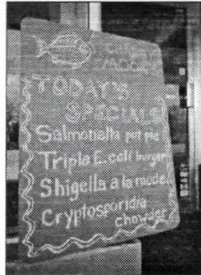 TODAY'S
SPECIALS
Salmonella pot pie
Tripla E.coli burger
Shigella à la mode
Cryptosporidia
chowder